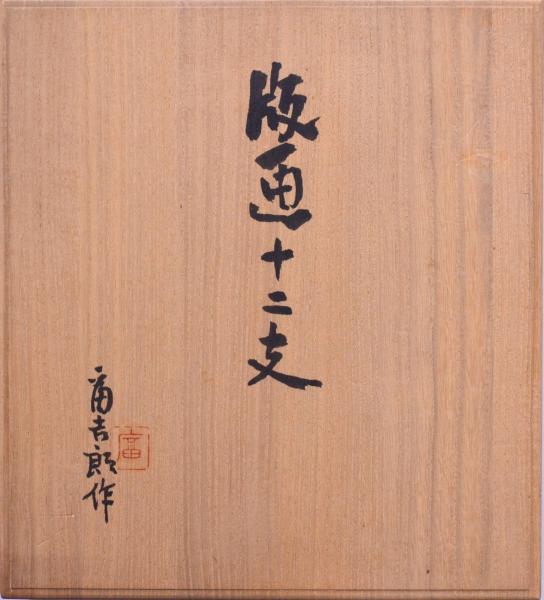 版画十二支
富吉郎作
富